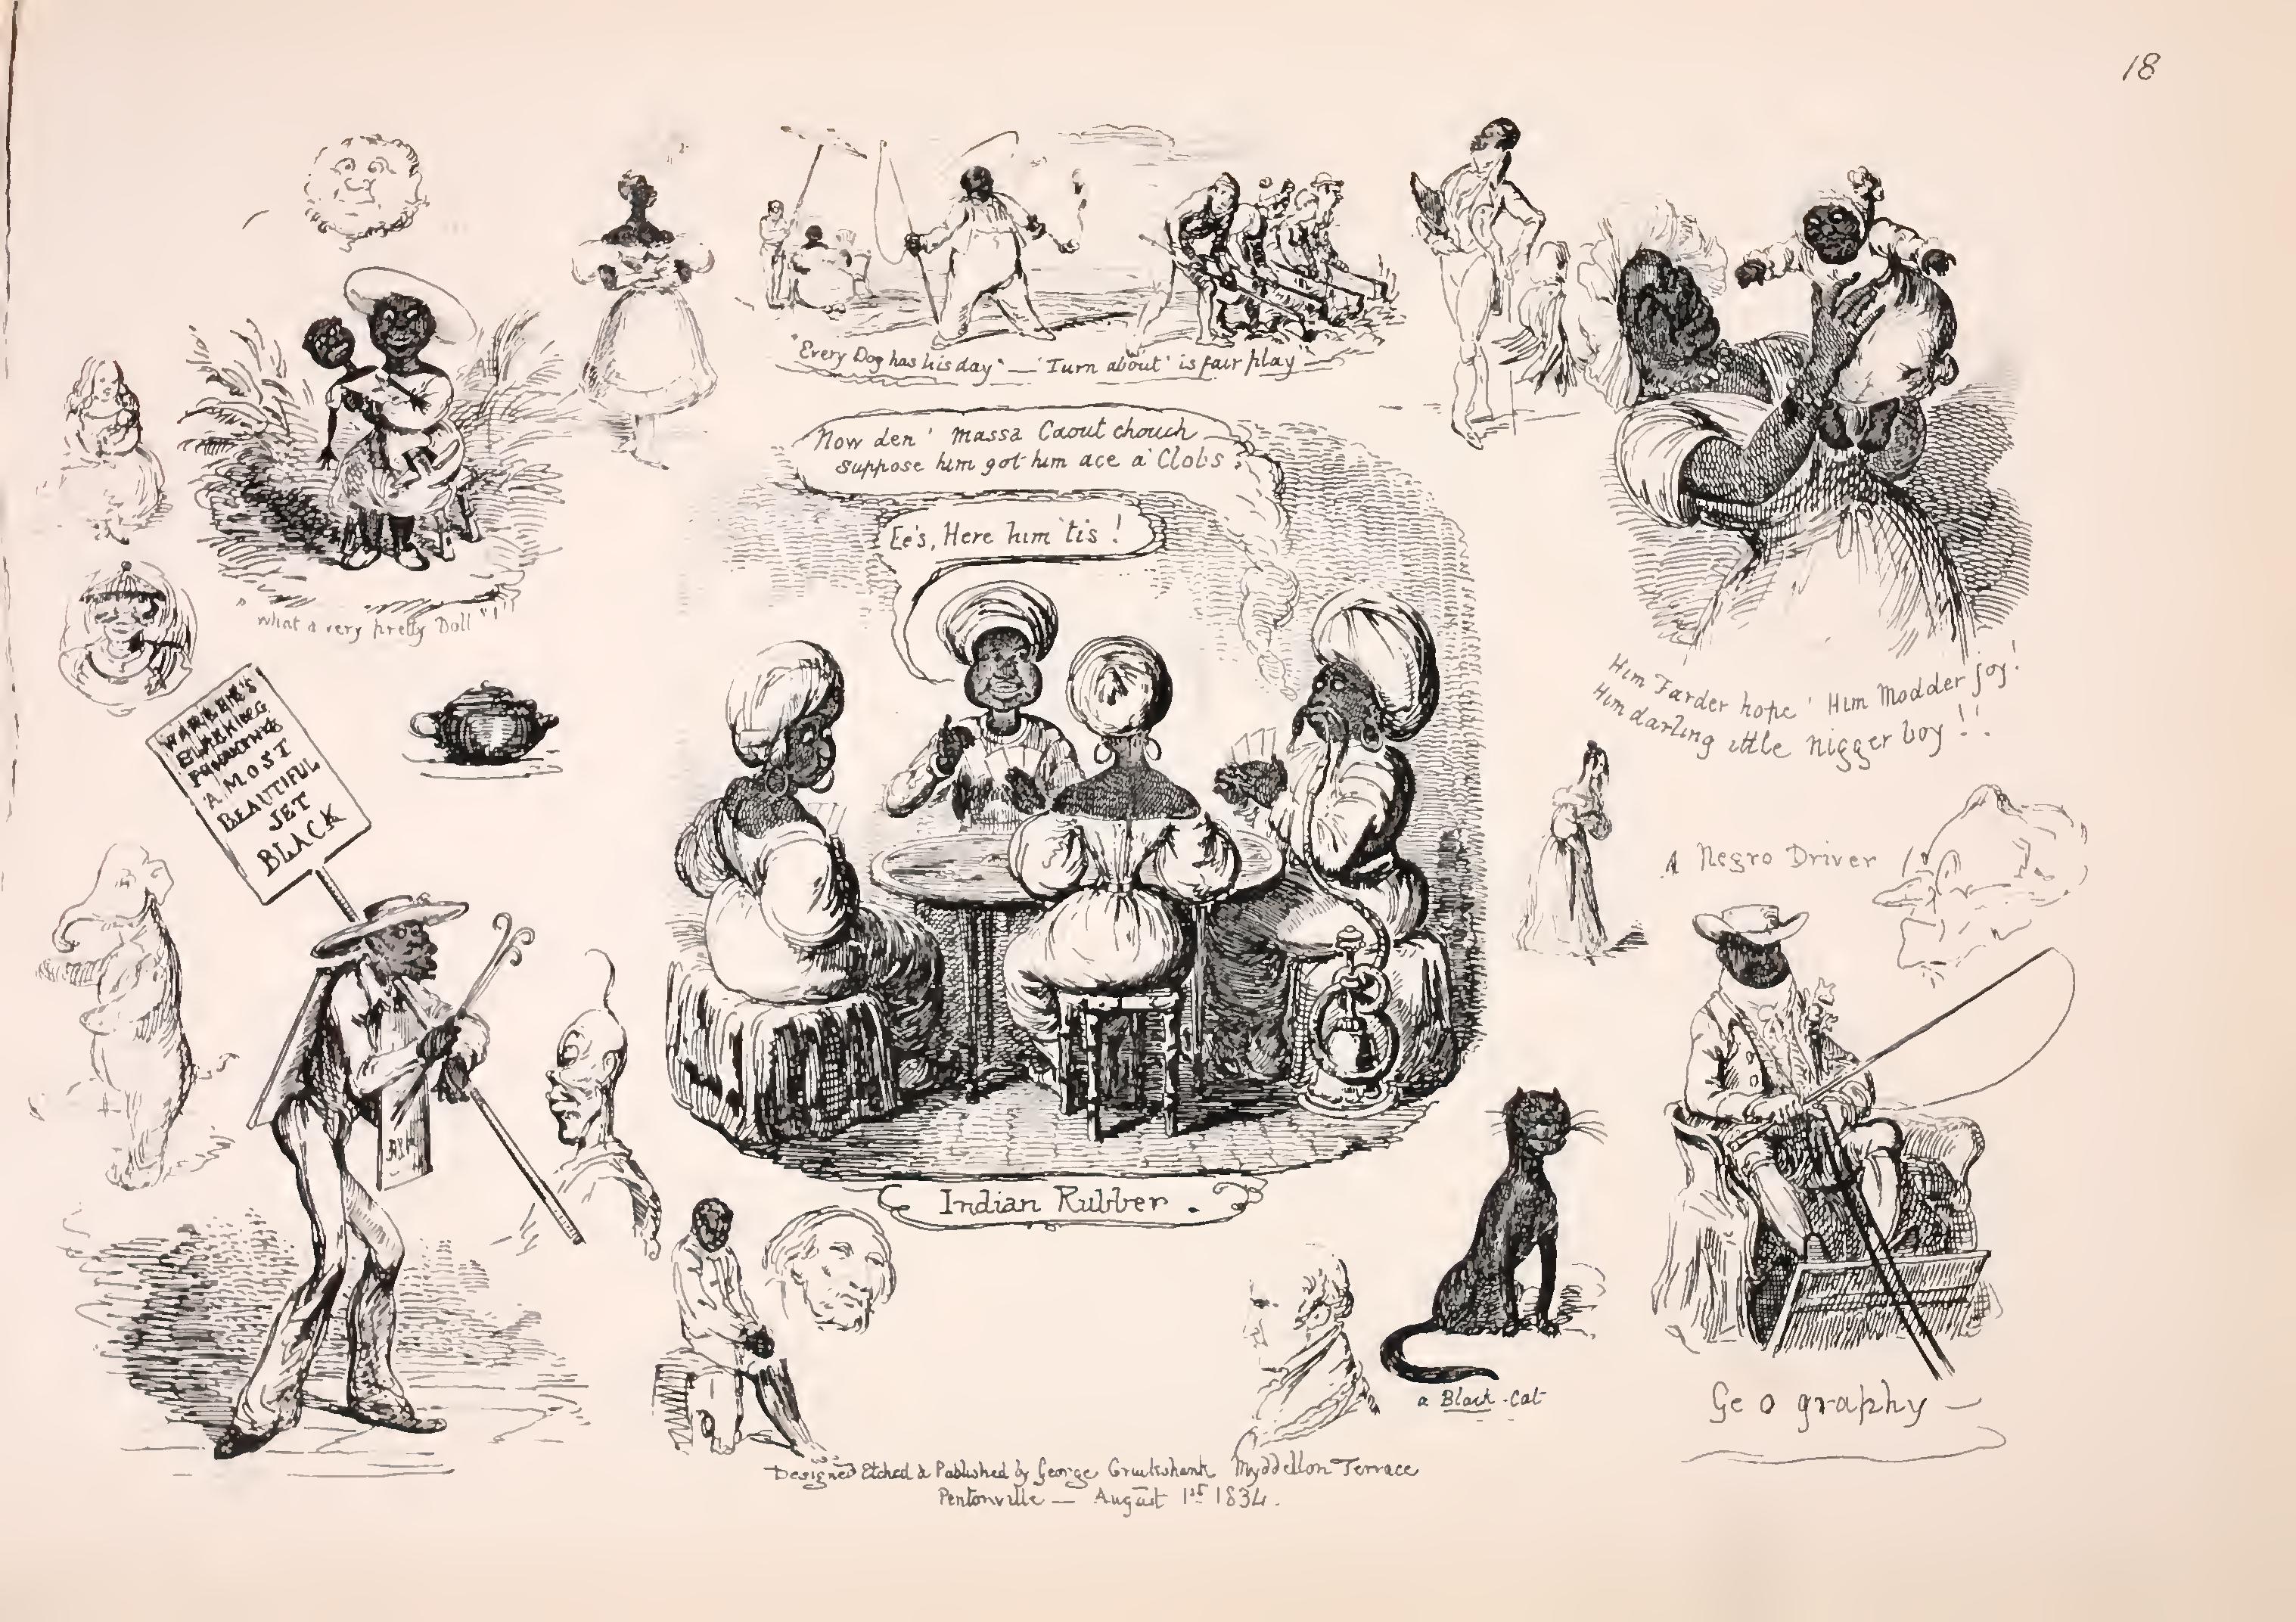 18
"Every Dog has his day" — 'Turn about' is fair play"
Now den' massa Caoutchouch
suppose him got him ace a' Clobs?
Ee's, Here him 'tis!
"what a very pretty Doll"!"
WARREN'S
BLACKING
A MOST
BEAUTIFUL
JET
BLACK
Him Farder hope' Him Modder joy!
Him darling ittle nigger boy!!
A Negro Driver
Indian Rubber.
a Black-Cat
Geography —
Designed Etched & Published by George Cruikshank Myddellon Terrace
Pentonville — August 1st 1834.